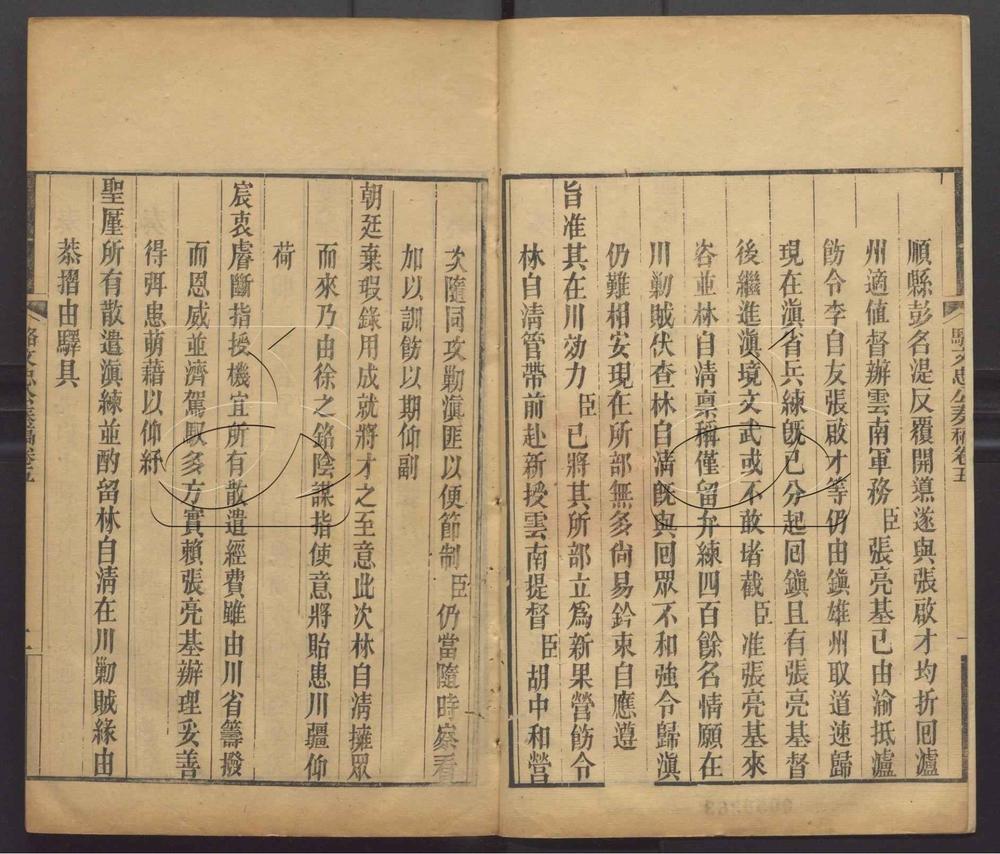 順縣彭名湜反覆開導遂與張啟才均折回瀘
州適值督辦雲南軍務臣張亮基已由渝抵瀘
飭令李自友張啟才等仍由鎮雄州取道速歸
現在滇省兵練旣已分起回鎮且有張亮基督
後繼進滇境文武或不敢堵截臣准張亮基來
咨並林自淸稟稱僅留弁練四百餘名情願在
川勦賊伏查林自淸旣與回眾不和強令歸滇
仍難相安現在所部無多尙易鈐束自應遵
旨准其在川効力臣已將其所部立爲新果營飭令
林自淸管帶前赴新授雲南提督臣胡中和營
次隨同攻勦滇匪以便節制臣仍當隨時察看
加以訓飭以期仰副
朝廷棄瑕錄用成就將才之至意此次林自淸擁眾
而來乃由徐之銘陰謀指使意將貽患川疆仰
荷
宸衷睿斷指授機宜所有散遣經費雖由川省籌撥
而恩威並濟駕馭多方實賴張亮基辦理妥善
得弭患萌藉以仰紓
聖厪所有散遣滇練並酌留林自淸在川勦賊緣由
恭摺由驛具
駱文忠公奏稿卷五